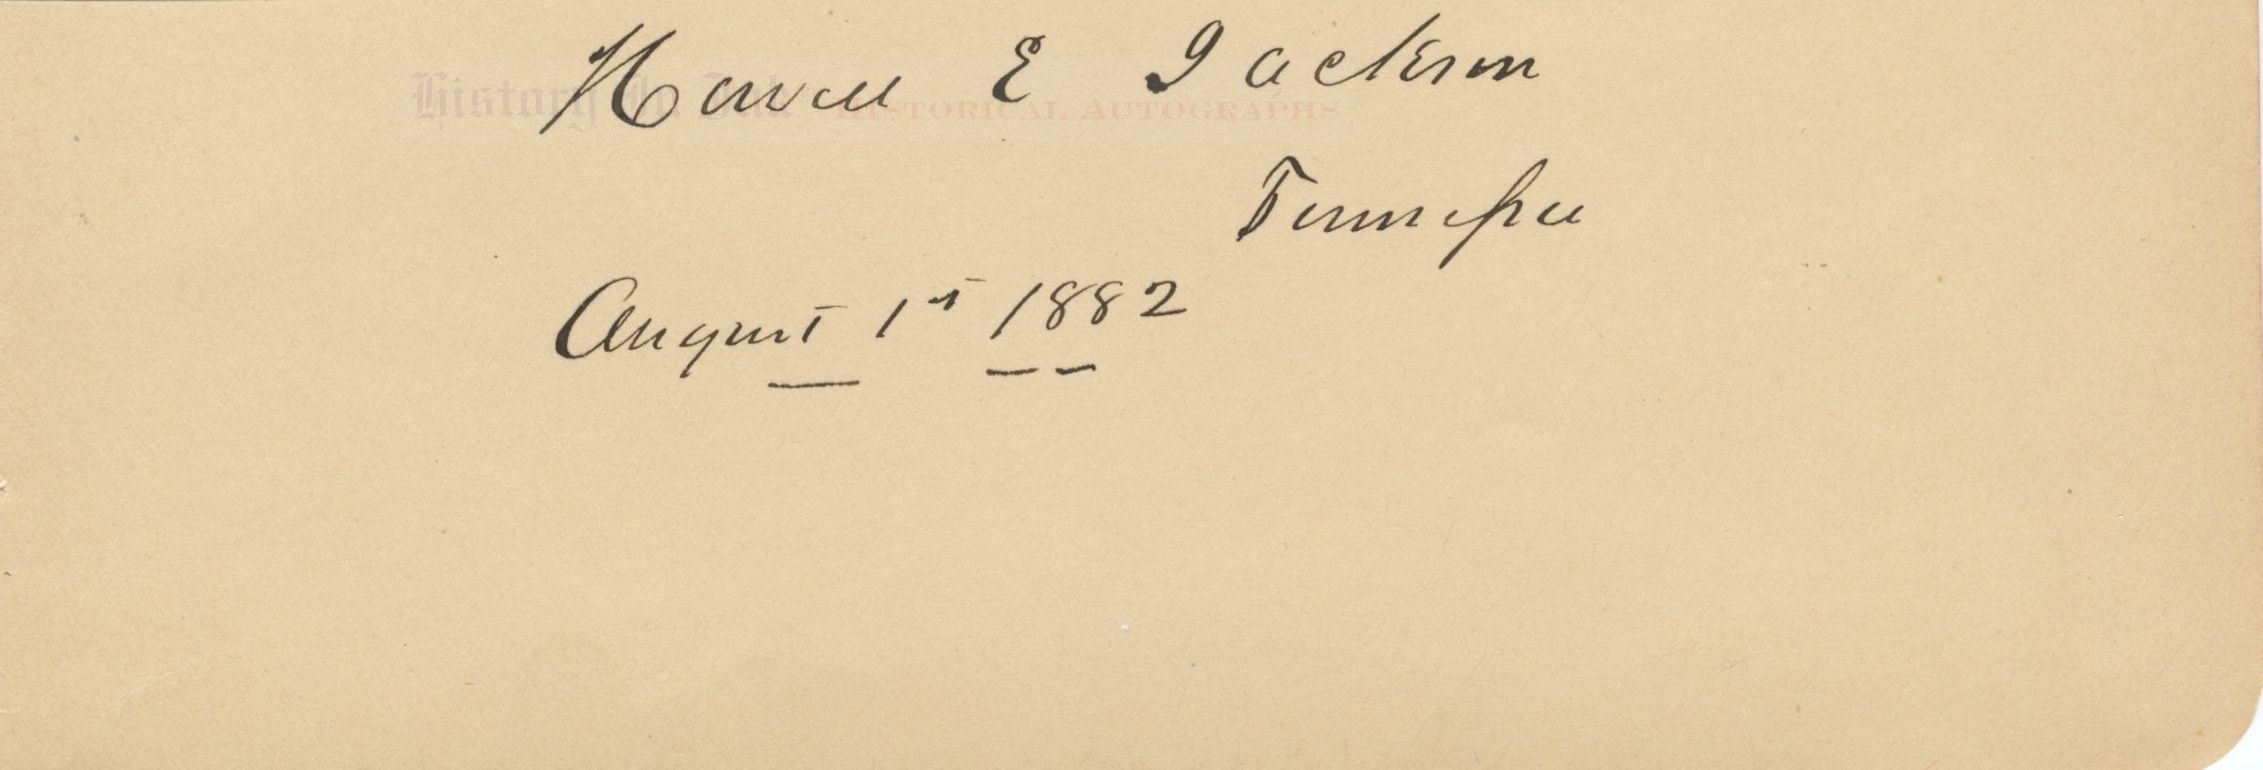 Howell E Jackson
History In Ink HISTORICAL AUTOGRAPHS
Tennessee
August 1st 1882